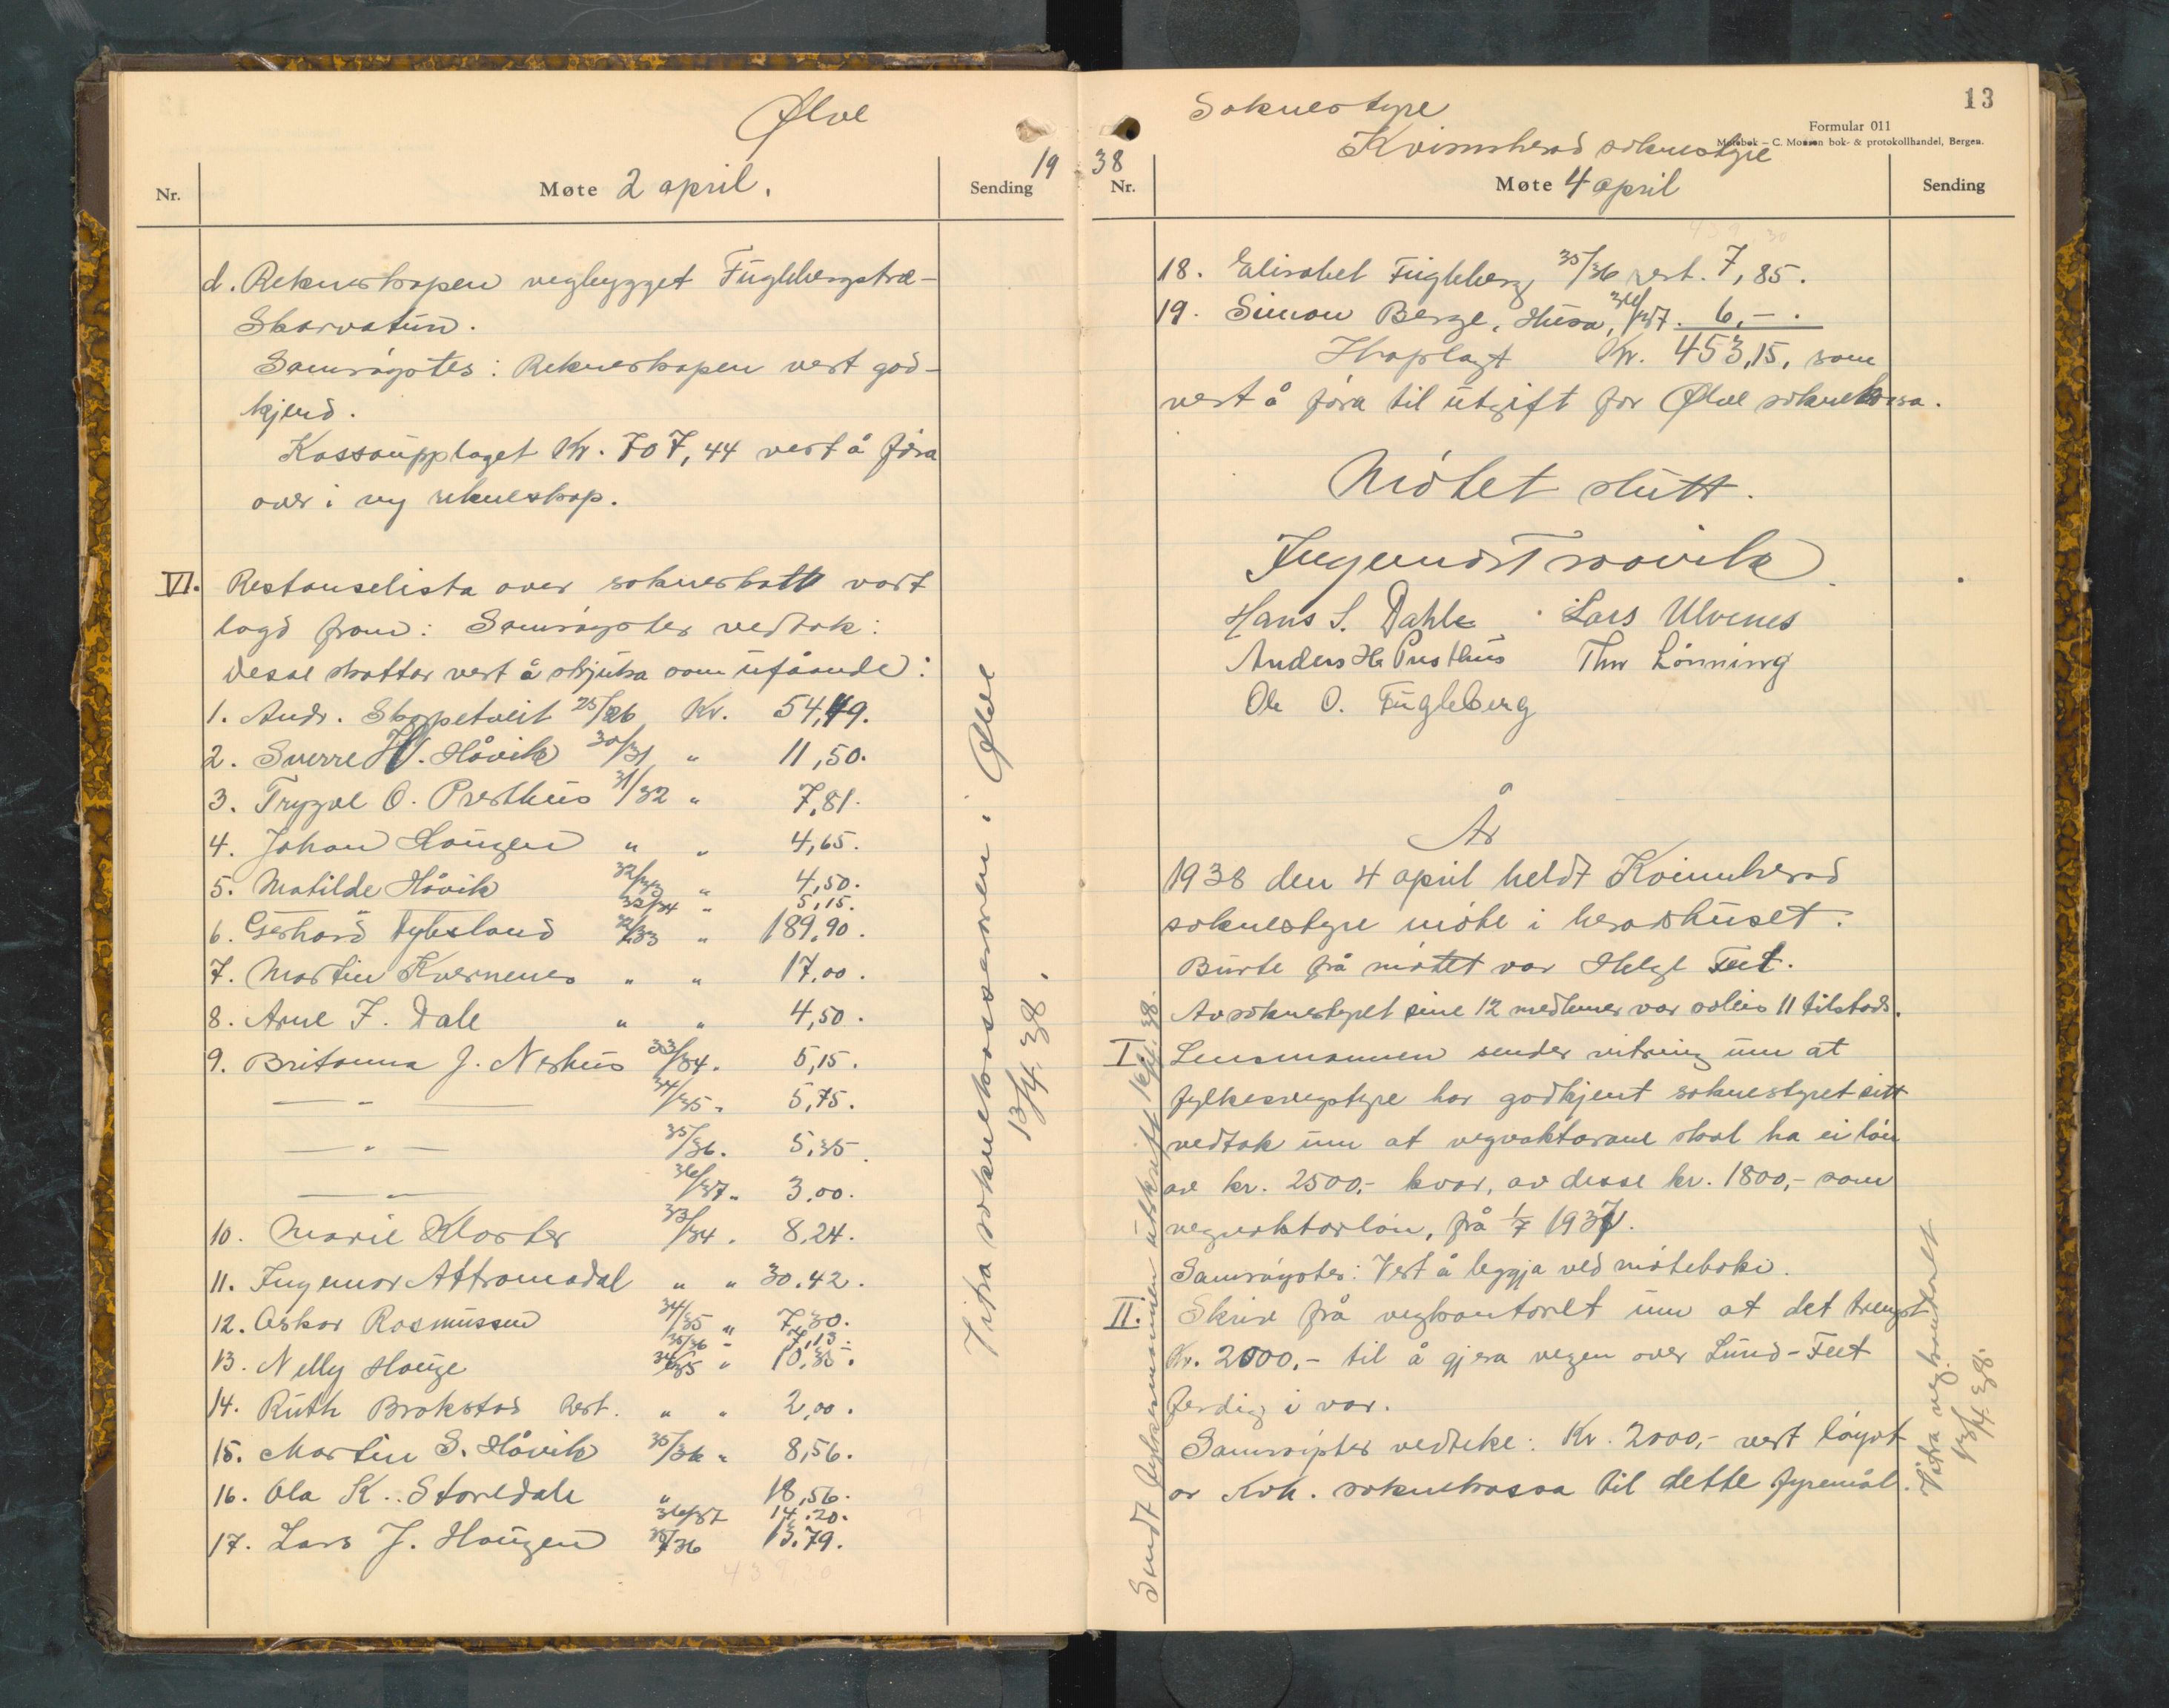 Ølve
19
Nr.
Møte 2 april.
Sending
d. Rekneskapen vegbygget Fuglebergstræ-
Skarvatun.
Samrøystes: Rekneskapen vert god-
kjend.
Kassaupplaget Kr. 707,44 vert å føra
over i ny rekneskap.
VI. Restanselista over sokneskatt vart
lagd fram: Samrøystes vedtak:
Desse skattar vert å stryka som uføande:
1. Andr. Skopetveit 25/26 Kr. 54,49.
2. Sverre H. Håvik 30/31 " 11,50.
3. Trygve O. Presthus 31/32 " 7,81.
4. Johan Haugen " " 4,65.
5. Matilde Håvik 32/33 " 4,50.
33/34 " 5,15.
6. Gerhard Dybsland 32/33 " 189,90.
7. Martin Kvernenes " " 17,00.
8. Arne J. Dale " " 4,50.
9. Britanna J. Neshus 33/34. 5,15.
— " — 34/35 " 5,75.
— " — 35/36. 5,35.
— " — 36/37 " 3,00.
10. Marie Kloster 33/34. 8,24.
11. Ingemar Attramadal " " 30.42.
12. Oskar Rasmussen 34/35 " 7,30.
35/36 " 7,13.
13. Nelly Hauge 34/35 " 10,35.
14. Ruth Brokstad Rest. " " 2,00.
15. Martin S. Håvik 35/36 " 8,56.
16. Ola K. Støredale " 18,56.
36/37 14.20.
17. Lars J. Haugen 35/36 13.79.
Titra soknekasseraren i Ølve
13/4. 38.
Soknestyre
Kvinnherad soknestyre
13
Formular 011
Møtebok – C. Monsen bok- & protokollhandel, Bergen.
38
Nr.
Møte 4 april
Sending
18. Elisabet Fugleberg 35/36 rest. 7,85.
19. Simon Berge, Husa, 36/37. 6,- .
Ihoplagt Kr. 453,15, som
vert å føra til utgift for Ølve soknekassa.
Møtet slutt.
Ingemund Traavik
Hans S. Dahle Lars Ulvenes
Anders H. Presthus Thv Lønning
Ole O. Fugleberg
År
1938 den 4 april heldt Kvinnherad
soknestyre møte i heradshuset.
Burte frå møtet var Helge Feet.
Av soknestyret sine 12 medlemer var soleis 11 tilstads.
I. Lensmannen sender vitring um at
fylkesvegstyre har godkjent soknestyret sitt
vedtak um at vegvaktarane skal ha ei løn
av kr. 2500,- kvar, av desse kr. 1800,- som
vegvaktarløn, frå 1/7 1937.
Samrøystes: Vert å leggja ved møteboki.
II. Skriv frå vegkontoret um at det trengst
Kr. 2000,- til å gjera vegen over Lund-Feet
ferdig i vår.
Samrøystes vedteke: Kr. 2000,- vert løyvt
av Kvh. soknekassa til dette fyremål.
Sendt fylkesmannen utskrift 16/4. 38.
Titra vegkontoret
13/4. 38.